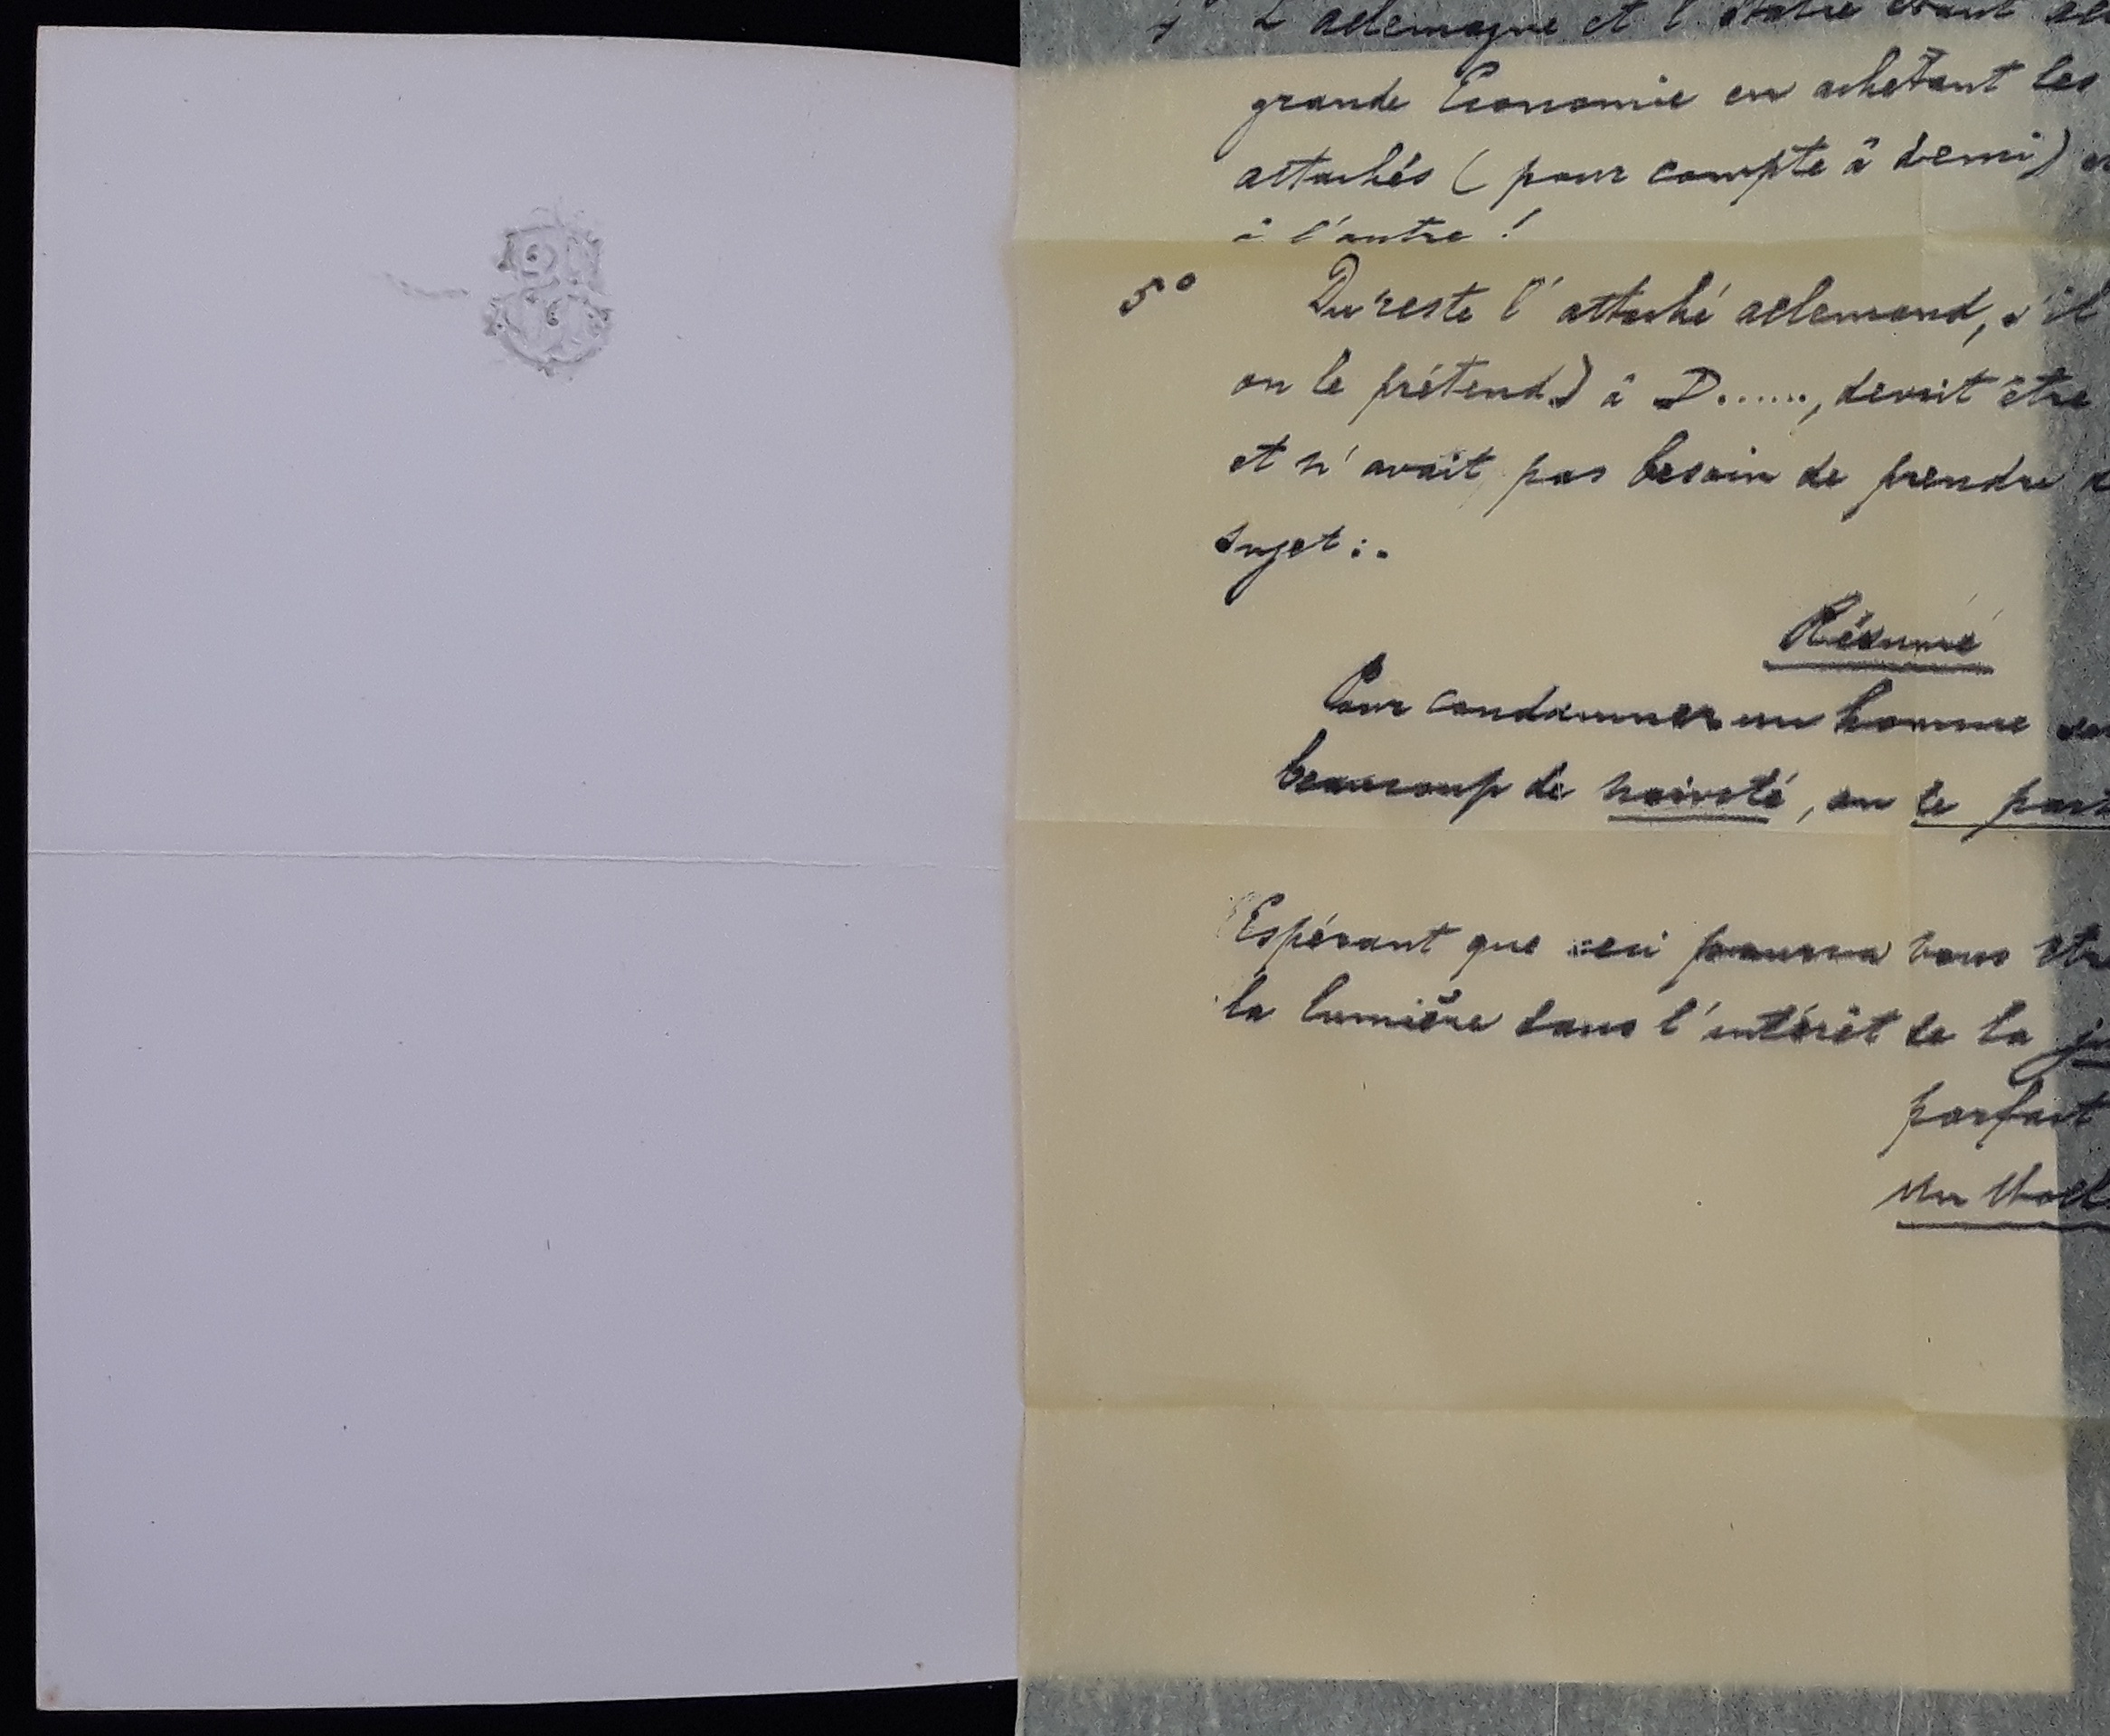 4° L'allemagne et l'Italie étant
grande Economie en achetant les
attachés (pour compte à demi)
à l'autre !
5° Du reste l'attaché allemand, s'il
on le prétend) à D......, devait être
et n'avait pas besoin de prendre
sujet :.
Résumé
Pour condamner un homme
beaucoup de naïveté, ou le
Espérant que ceci pourra vous
la lumière dans l'intérêt de la
parfait
Un